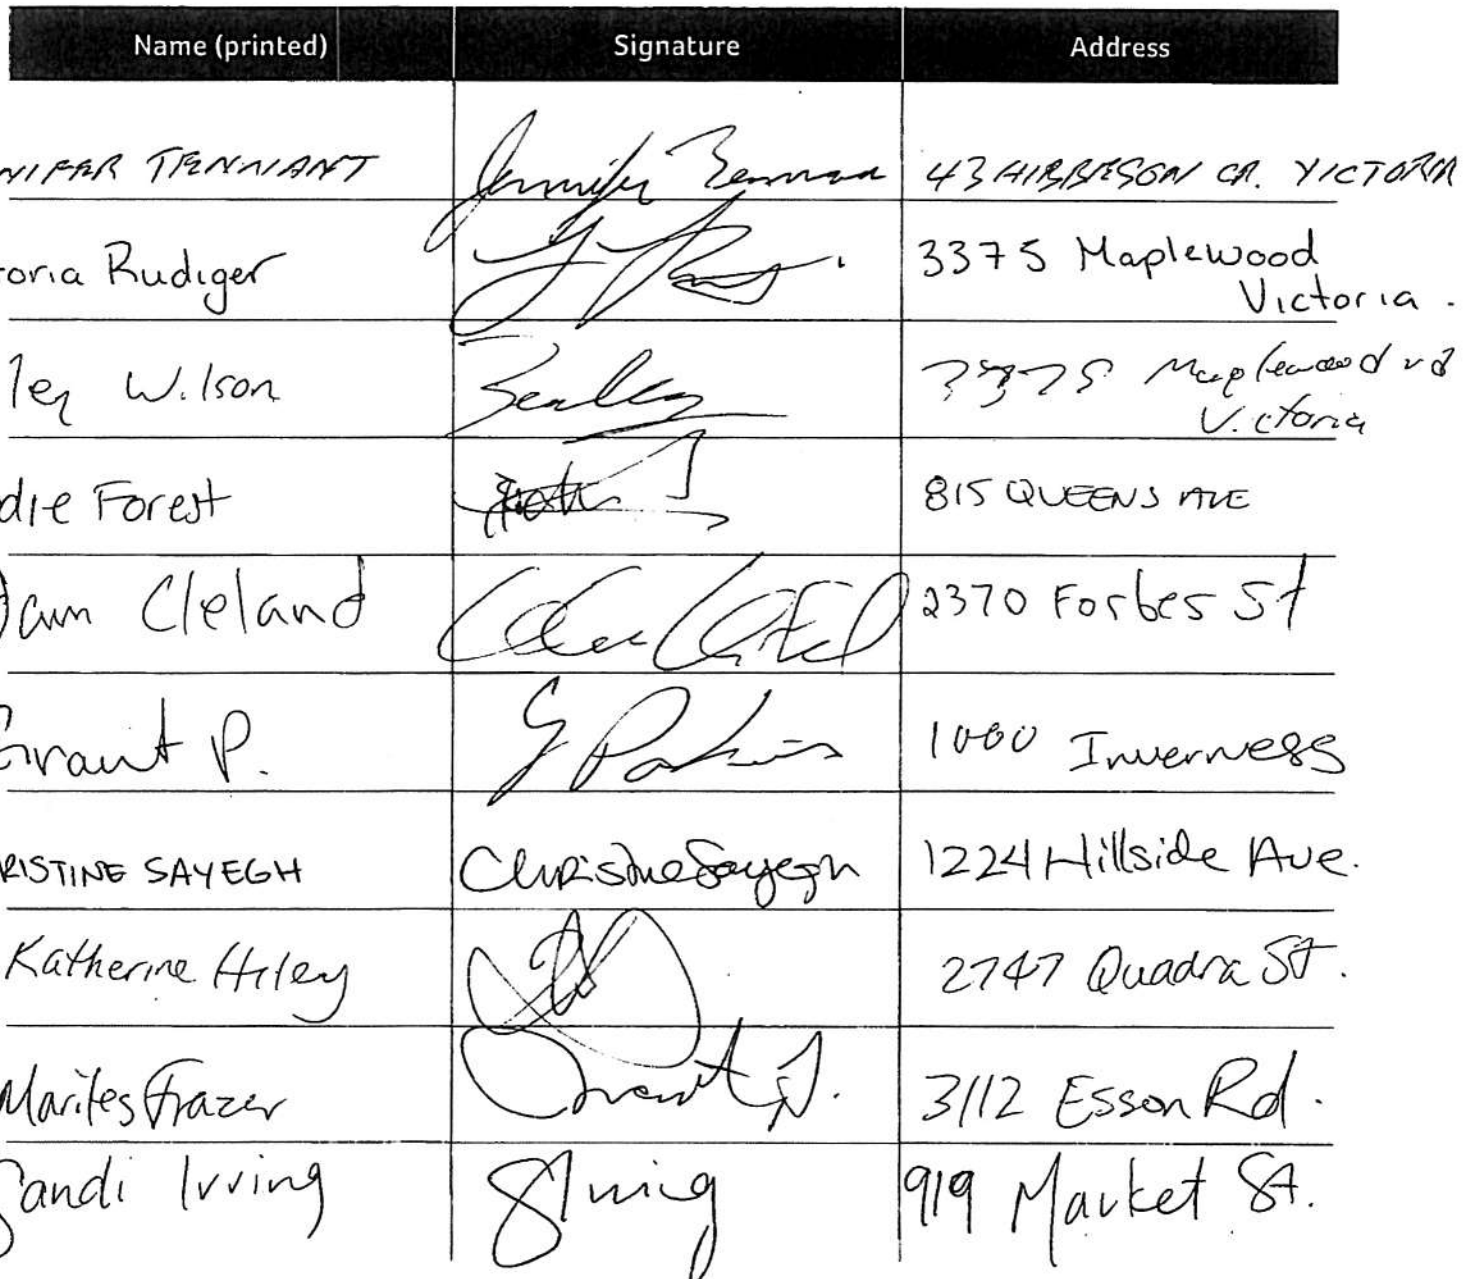 Name (printed) Signature Address
NIFER TENNANT Jennifer Tennant 43 HIBBERSON CR. VICTORIA
oria Rudiger 3375 Maplewood
Victoria.
ley Wilson 3375 Maplewood rd
Victoria
die Forest 815 QUEENS AVE
dam Cleland 2370 Forbes St
Grant P. 1000 Inverness
RISTINE SAYEGH Christine Sayegh 1224 Hillside Ave.
Katherine Hiley 2747 Quadra St.
Marites Frazer 3112 Esson Rd.
Sandi Irving SIrving 919 Market St.